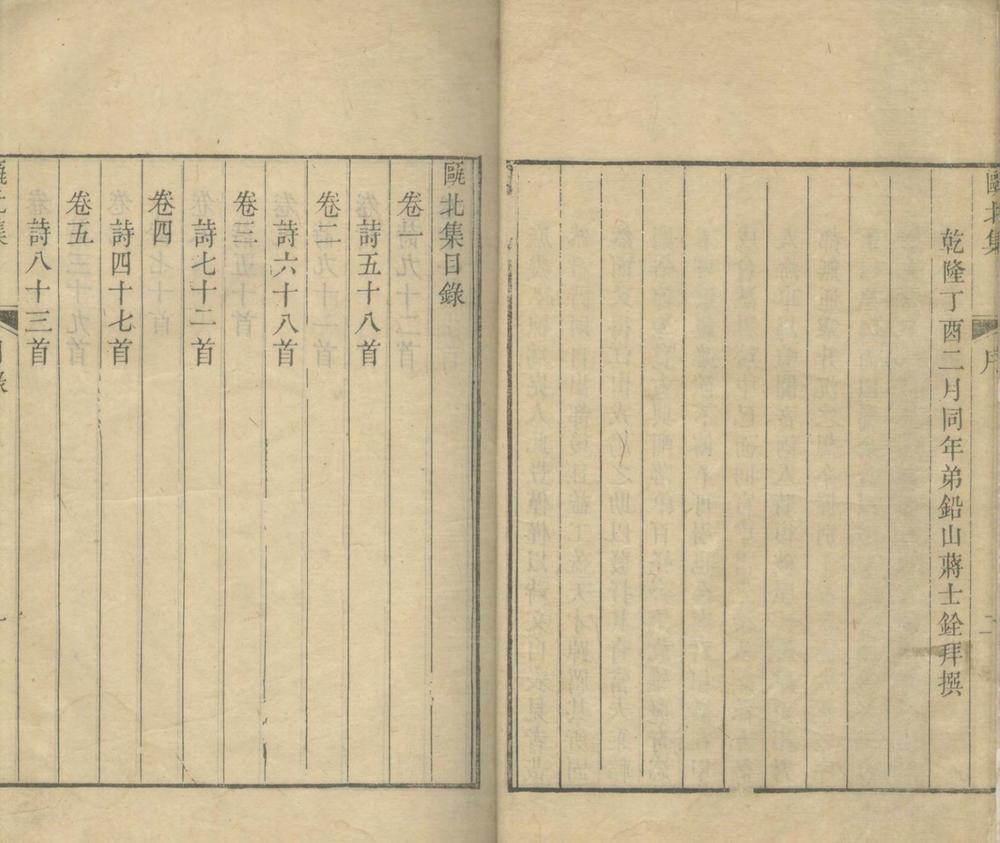 甌北集
序
二
乾隆丁酉二月同年弟鉛山蔣士銓拜撰
甌北集目錄
卷一
詩五十八首
卷二
詩六十八首
卷三
詩七十二首
卷四
詩四十七首
卷五
詩八十三首
甌北集
目錄
一